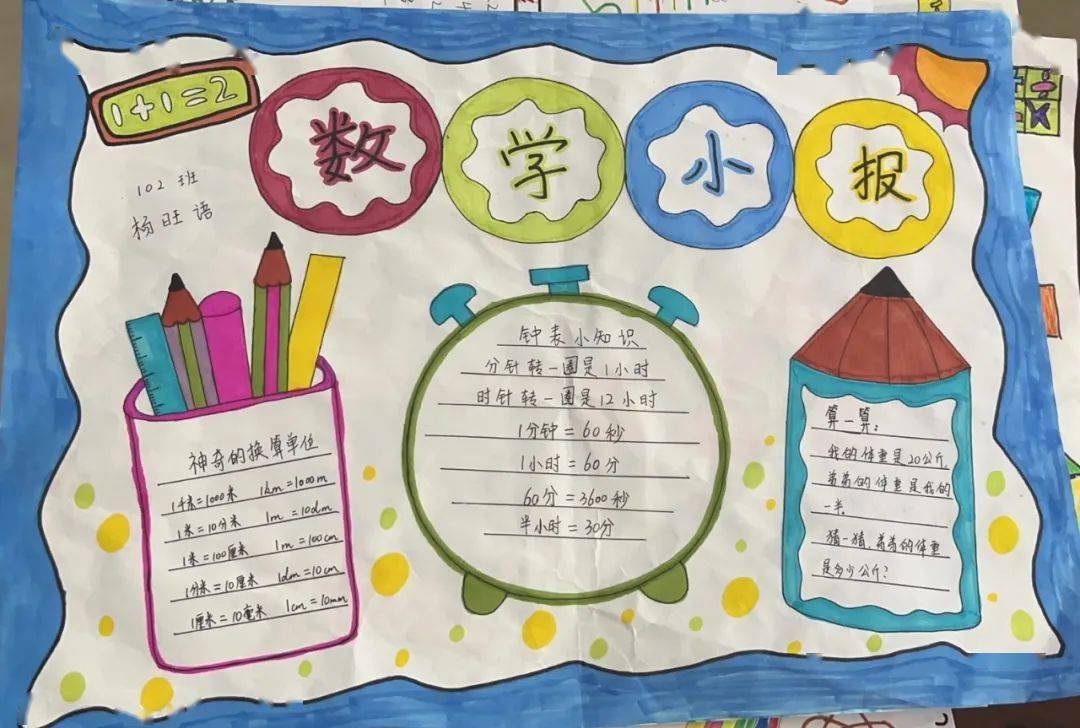 1+1=2
数学小报
102班
杨旺语
神奇的换算单位
1千米=1000米 1km=1000m
1米=10分米 1m=10dm
1米=100厘米 1m=100cm
1分米=10厘米 1dm=10cm
1厘米=10毫米 1cm=10mm
钟表小知识
分针转一圈是1小时
时针转一圈是12小时
1分钟=60秒
1小时=60分
60分=3600秒
半小时=30分
算一算:
我的体重是20公斤,
弟弟的体重是我的
一半,
猜一猜,弟弟的体重
是多少公斤?